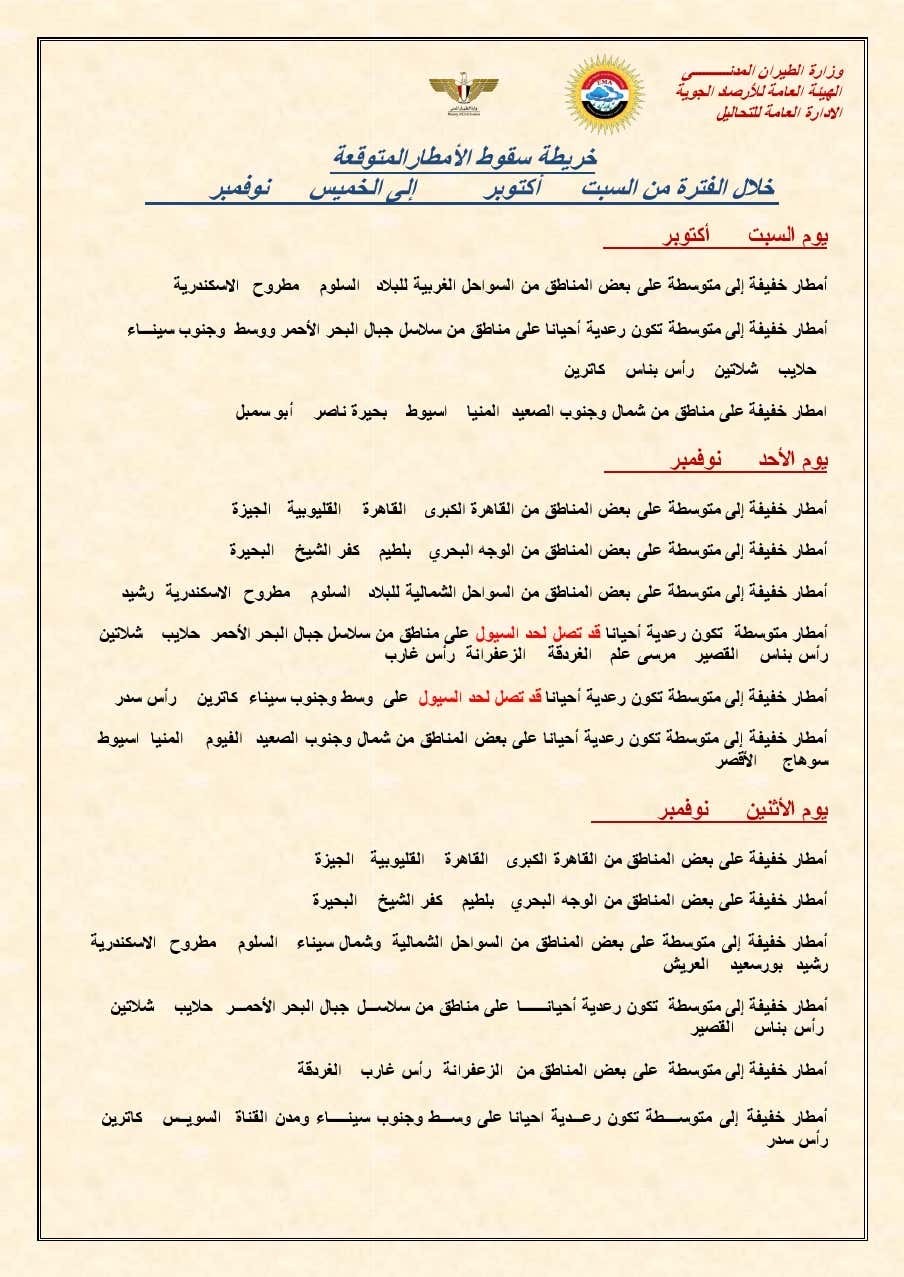 وزارة الطيران المدنـــــــــــي
الهيئة العامة للأرصاد الجوية
الادارة العامة للتحاليل
EMA
خريطة سقوط الأمطار المتوقعة
خلال الفترة من السبت أكتوبر إلى الخميس نوفمبر
يوم السبت أكتوبر
أمطار خفيفة إلى متوسطة على بعض المناطق من السواحل الغربية للبلاد السلوم مطروح الاسكندرية
أمطار خفيفة إلى متوسطة تكون رعدية أحيانا على مناطق من سلاسل جبال البحر الأحمر ووسط وجنوب سينـــاء
حلايب شلاتين رأس بناس كاترين
امطار خفيفة على مناطق من شمال وجنوب الصعيد المنيا اسيوط بحيرة ناصر أبو سمبل
يوم الأحد نوفمبر
أمطار خفيفة إلى متوسطة على بعض المناطق من القاهرة الكبرى القاهرة القليوبية الجيزة
أمطار خفيفة إلى متوسطة على بعض المناطق من الوجه البحري بلطيم كفر الشيخ البحيرة
أمطار خفيفة إلى متوسطة على بعض المناطق من السواحل الشمالية للبلاد السلوم مطروح الاسكندرية رشيد
أمطار متوسطة تكون رعدية أحيانا قد تصل لحد السيول على مناطق من سلاسل جبال البحر الأحمر حلايب شلاتين
رأس بناس القصير مرسى علم الغردقة الزعفرانة رأس غارب
أمطار خفيفة إلى متوسطة تكون رعدية أحيانا قد تصل لحد السيول على وسط وجنوب سيناء كاترين رأس سدر
أمطار خفيفة إلى متوسطة تكون رعدية أحيانا على بعض المناطق من شمال وجنوب الصعيد الفيوم المنيا اسيوط
سوهاج الأقصر
يوم الأثنين نوفمبر
أمطار خفيفة على بعض المناطق من القاهرة الكبرى القاهرة القليوبية الجيزة
أمطار خفيفة على بعض المناطق من الوجه البحري بلطيم كفر الشيخ البحيرة
أمطار خفيفة إلى متوسطة على بعض المناطق من السواحل الشمالية وشمال سيناء السلوم مطروح الاسكندرية
رشيد بورسعيد العريش
أمطار خفيفة إلى متوسطة تكون رعدية أحيانــــا على مناطق من سلاســل جبال البحر الأحمــر حلايب شلاتين
رأس بناس القصير
أمطار خفيفة إلى متوسطة على بعض المناطق من الزعفرانة رأس غارب الغردقة
أمطار خفيفة إلى متوســـطة تكون رعـــدية احيانا على وســـط وجنوب سينــــاء ومدن القناة السويـــس كاترين
رأس سدر